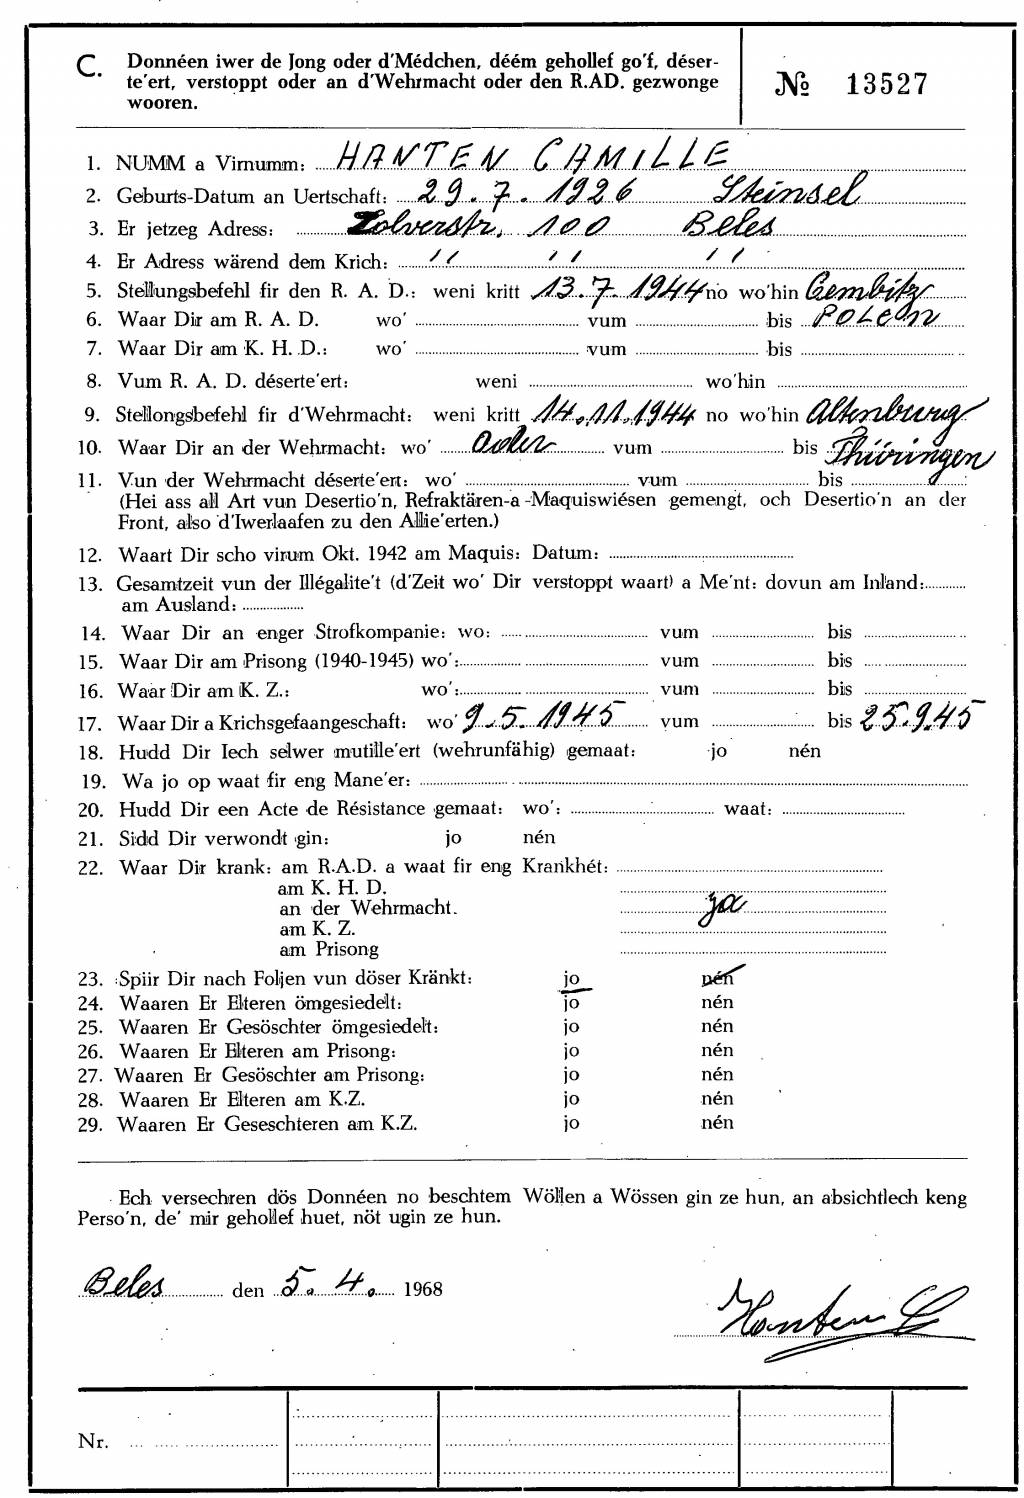 C. Donnéen iwer de Jong oder d'Médchen, déém gehollef go'f, déser-
te'ert, verstoppt oder an d'Wehrmacht oder den R.AD. gezwonge
wooren.
№ 13527
1. NUMM a Virnumm: HANTEN CAMILLE
2. Geburts-Datum an Uertschaft: 29.7.1926 Steinsel
3. Er jetzeg Adress: Zolverstr, 100 Beles
4. Er Adress wärend dem Krich: '' '' ''
5. Stellungsbefehl fir den R. A. D.: weni kritt 13.7.1944 no wo'hin Gembitz
6. Waar Dir am R. A. D. wo' vum bis POLEN
7. Waar Dir am K. H. D.: wo' vum bis
8. Vum R. A. D. déserte'ert: weni wo'hin
9. Stellongsbefehl fir d'Wehrmacht: weni kritt 14.11.1944 no wo'hin Altenburg
10. Waar Dir an der Wehrmacht: wo' vum bis Thüringen
11. Vun der Wehrmacht déserte'ert: wo' vum bis
(Hei ass all Art vun Desertio'n, Refraktären-a-Maquiswiésen gemengt, och Desertio'n an der
Front, also d'Iwerlaafen zu den Allie'erten.)
12. Waart Dir scho virum Okt. 1942 am Maquis: Datum:
13. Gesamtzeit vun der Illégalite't (d'Zeit wo' Dir verstoppt waart) a Me'nt: dovun am Inland:
am Ausland:
14. Waar Dir an enger Strofkompanie: wo: vum bis
15. Waar Dir am Prisong (1940-1945) wo': vum bis
16. Waar Dir am K. Z.: wo': vum bis
17. Waar Dir a Krichsgefaangeschaft: wo' 9.5.1945 vum bis 25.9.45
18. Hudd Dir Iech selwer mutille'ert (wehrunfähig) gemaat: jo nén
19. Wa jo op waat fir eng Mane'er:
20. Hudd Dir een Acte de Résistance gemaat: wo': waat:
21. Sidd Dir verwondt gin: jo nén
22. Waar Dir krank: am R.A.D. a waat fir eng Krankhét:
am K. H. D.
an der Wehrmacht. ja
am K. Z.
am Prisong
23. Spiir Dir nach Foljen vun döser Kränkt: jo nén
24. Waaren Er Elteren ömgesiedelt: jo nén
25. Waaren Er Gesöschter ömgesiedelt: jo nén
26. Waaren Er Elteren am Prisong: jo nén
27. Waaren Er Gesöschter am Prisong: jo nén
28. Waaren Er Elteren am K.Z. jo nén
29. Waaren Er Geseschteren am K.Z. jo nén
Ech versechren dös Donnéen no beschtem Wöllen a Wössen gin ze hun, an absichtlech keng
Perso'n, de' mir gehollef huet, nöt ugin ze hun.
Beles den 5.4. 1968
Hanten C
Nr.